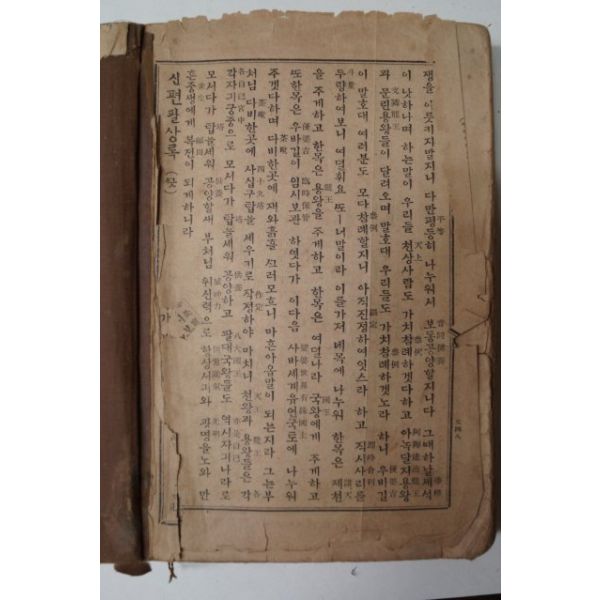 쟁을 이릇키지말지니 다만평등히 나누워서 보동공양할지니다 그때하날께서
이 낫하나며 하는말이 우리들 천상사람도 가치참례하겟다하고 아녹달지용왕
과 문린용왕들이 달려오며 말호대 우리들도 가치참례하겟노라 하니 우바길
이 말호대 여러분도 모다참례할지니 아직진정하여잇스라 하고 직시사리를
두량하여보니 여덜휘요 또一너말이라 이를가저 네목에 나누워 한목은 제천
을 주게하고 한목은 용왕을 주게하고 한목은 여덜나라 국왕에게 주게하고
또한목은 우바길이 임시보관 하엿다가 이다음 사바세계유연국토에 나누워
주겟다하며 다비한곳에 재와흙을 쓰러모흐니 마흔아홉말이 되는지라 그는부
처님 다비한곳에 사십구탑을 세우기로 작정하야 마치니 천왕과 용왕들은 각
각자긔궁중으로 모서다가 탑을세워 공양하고 팔대국왕들도 역시자긔나라로
모서다가 탑을세워 공양할새 부처님 위신력으로 항상서긔와 광명을노와 만
흔중생에게 복전이 되게하니라
신편팔상록 (終)